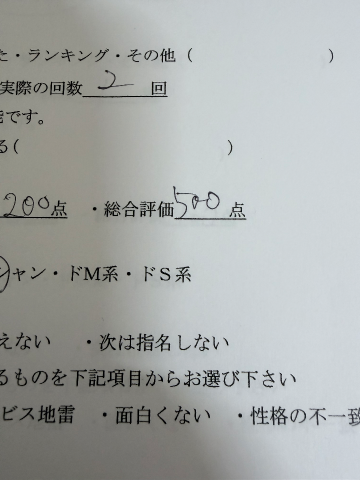 た・ランキング・その他（　　　　　　　）
実際の回数 2 回
能です。
る（　　　　　　　　　　　）
200点　・総合評価500点
ャン・ドM系・ドS系
えない　・次は指名しない
るものを下記項目からお選び下さい
ビス地雷　・面白くない　・性格の不一致